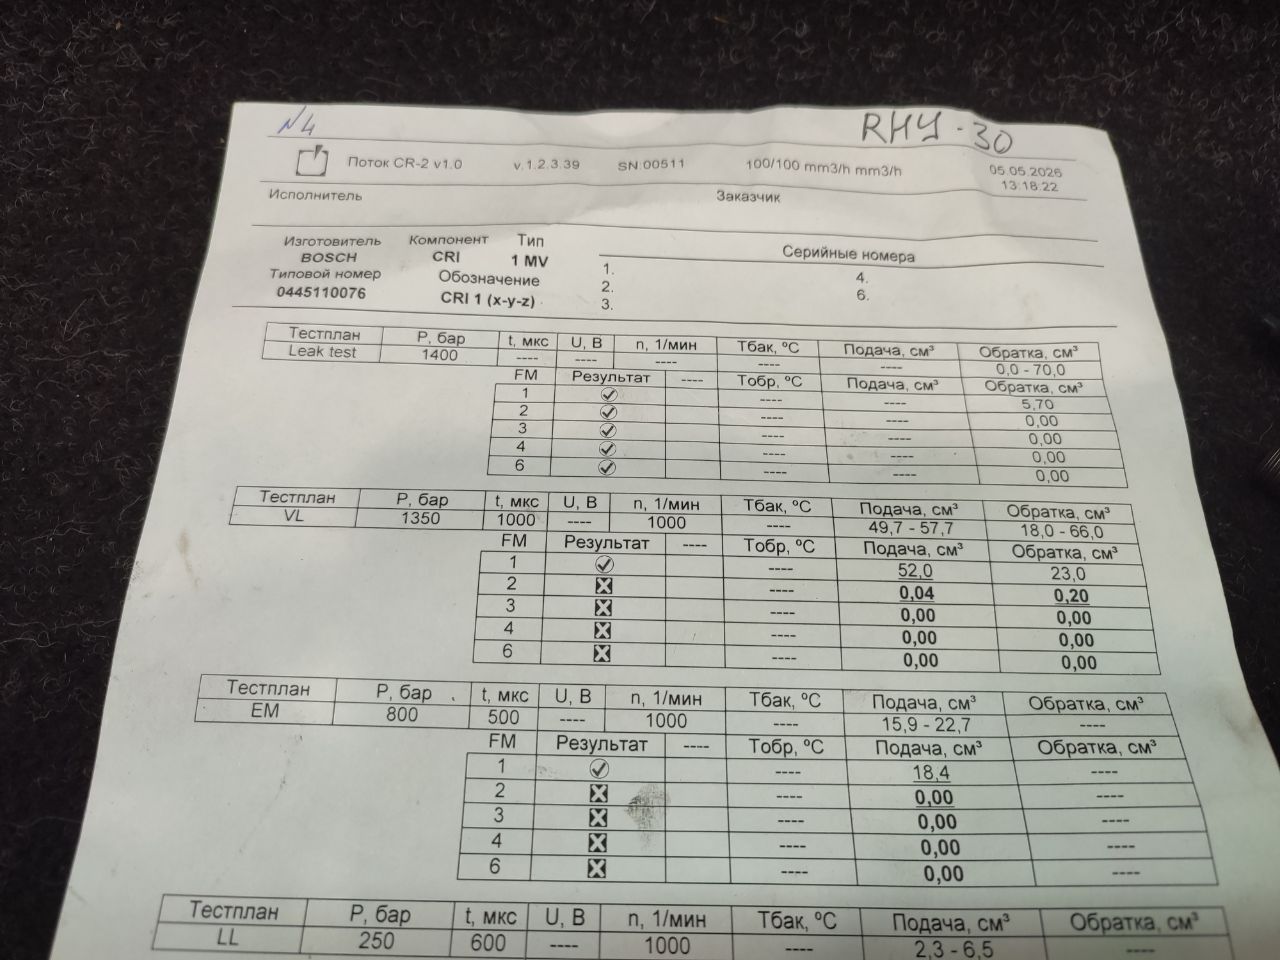 N4
RHY-30
Поток CR-2 v1.0 v.1.2.3.39 SN:00511 100/100 mm3/h mm3/h 05.05.2026
13:18:22
Исполнитель Заказчик
Изготовитель Компонент Тип Серийные номера
BOSCH CRI 1 MV 1. 4.
Типовой номер Обозначение 2. 6.
0445110076 CRI 1 (x-y-z) 3.
Тестплан P, бар t, мкс U, В n, 1/мин Тбак, ºC Подача, см³ Обратка, см³
Leak test 1400 ---- ---- ---- ---- ---- 0,0 - 70,0
FM Результат ---- Тобр, ºC Подача, см³ Обратка, см³
1 ---- ---- 5,70
2 ---- ---- 0,00
3 ---- ---- 0,00
4 ---- ---- 0,00
6 ---- ---- 0,00
Тестплан P, бар t, мкс U, В n, 1/мин Тбак, ºC Подача, см³ Обратка, см³
VL 1350 1000 ---- 1000 ---- 49,7 - 57,7 18,0 - 66,0
FM Результат ---- Тобр, ºC Подача, см³ Обратка, см³
1 ---- 52,0 23,0
2 ---- 0,04 0,20
3 ---- 0,00 0,00
4 ---- 0,00 0,00
6 ---- 0,00 0,00
Тестплан P, бар t, мкс U, В n, 1/мин Тбак, ºC Подача, см³ Обратка, см³
EM 800 500 ---- 1000 ---- 15,9 - 22,7 ----
FM Результат ---- Тобр, ºC Подача, см³ Обратка, см³
1 ---- 18,4 ----
2 ---- 0,00 ----
3 ---- 0,00 ----
4 ---- 0,00 ----
6 ---- 0,00 ----
Тестплан P, бар t, мкс U, В n, 1/мин Тбак, ºC Подача, см³ Обратка, см³
LL 250 600 ---- 1000 ---- 2,3 - 6,5 ----